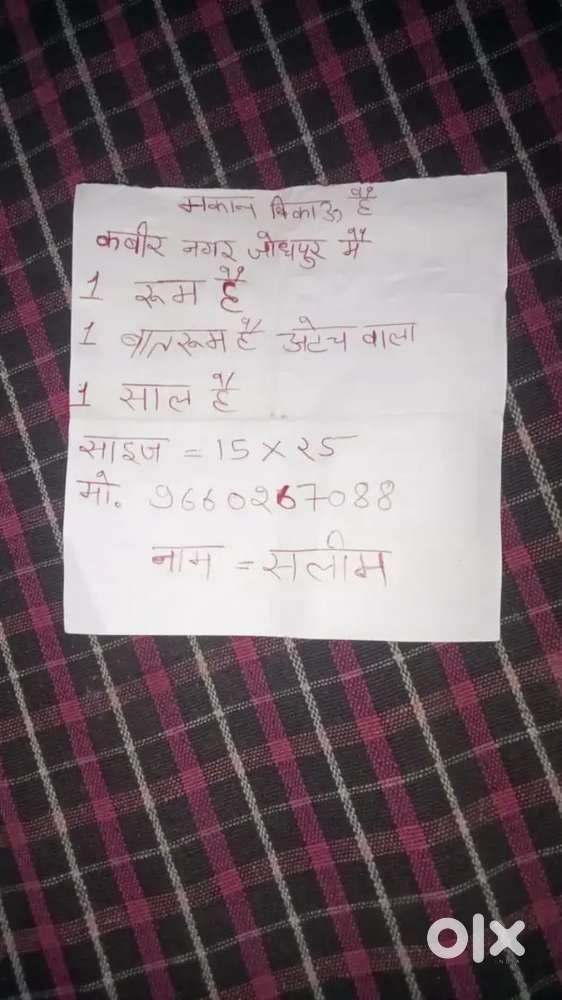 मकान बिकाऊ है
कबीर नगर जोधपुर में
1 रूम है
1 बातरूम है अटेच वाला
1 साल है
साइज = 15 × 25
मो. 9660267088
नाम = सलीम
olx
INDIA